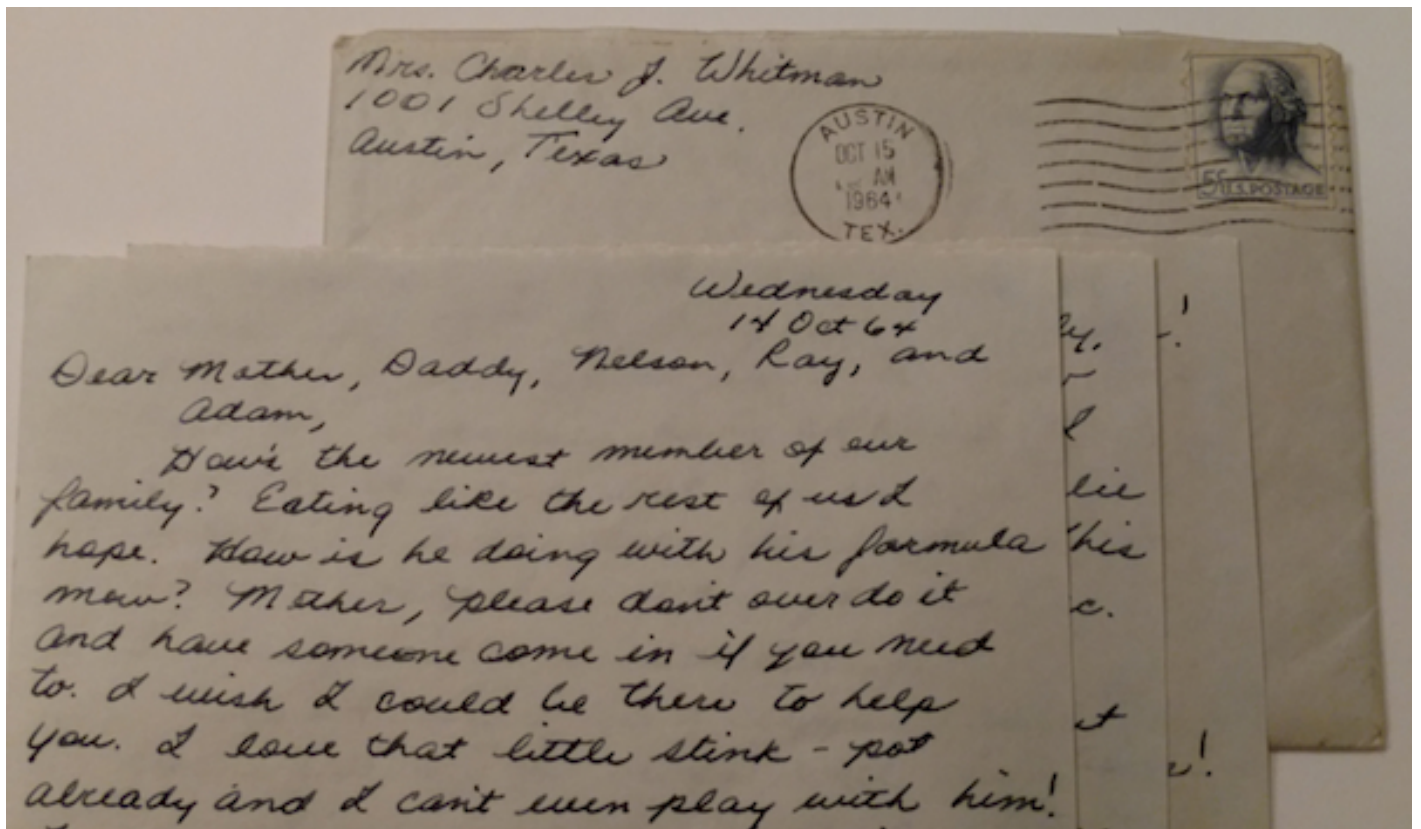 Mrs. Charles J. Whitman
1001 Shelley Ave.
Austin, Texas
AUSTIN
OCT 15
AM
1964
TEX.
5¢ U.S. POSTAGE
Wednesday
14 Oct 64
Dear Mother, Daddy, Nelson, Ray, and
Adam,
How's the newest member of our
family? Eating like the rest of us I
hope. How is he doing with his formula
now? Mother, please don't over do it
and have someone come in if you need
to. I wish I could be there to help
you. I love that little stink-pot
already and I can't even play with him!